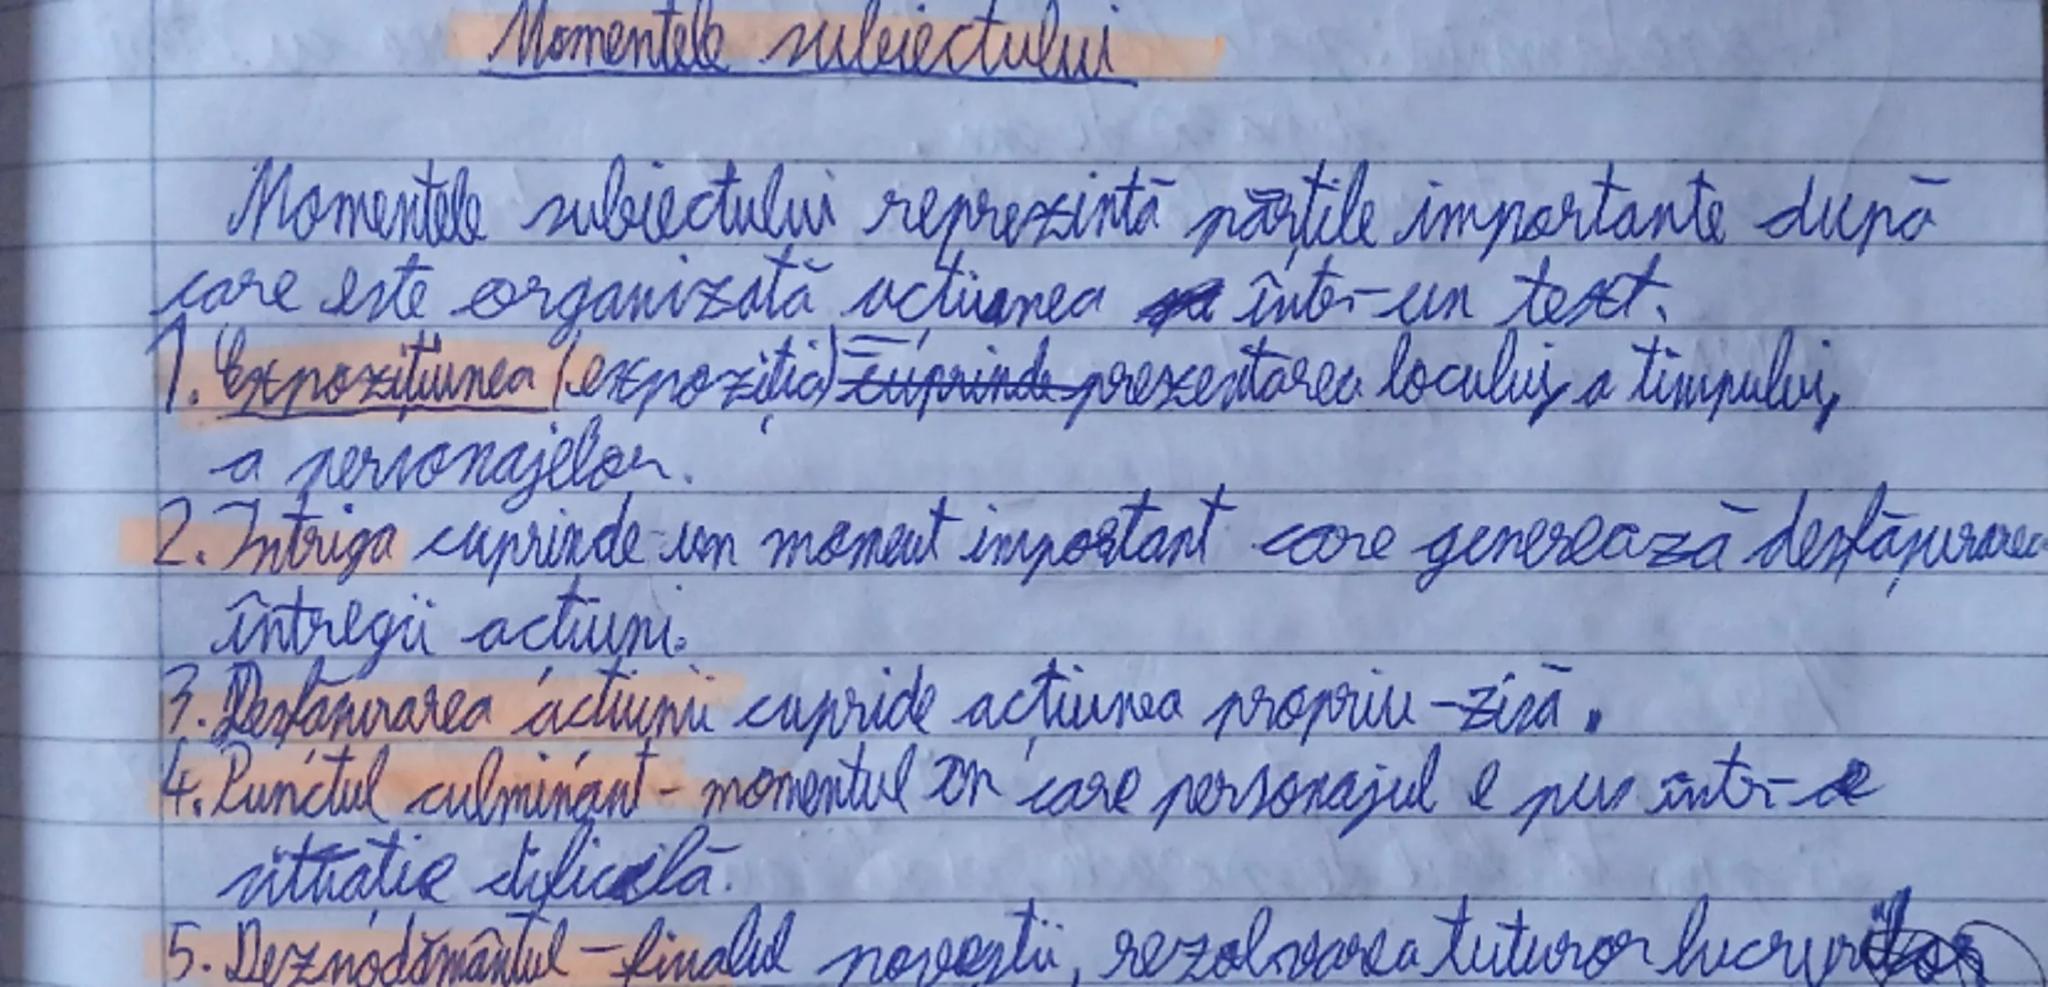 Momentele subiectului
Momentele subiectului reprezintă părțile importante după
care este organizată acțiunea într-un text.
1. Expozițiunea (expoziția) = prezentarea locului, a timpului,
a personajelor.
2. Intriga cuprinde un moment important care generează desfășurarea
întregii acțiuni.
3. Desfășurarea acțiunii cupride acțiunea propriu-zisă.
4. Punctul culminant - momentul în care personajul e pus într-o
situație dificilă.
5. Deznodământul - finalul poveștii, rezolvarea tuturor lucrurilor